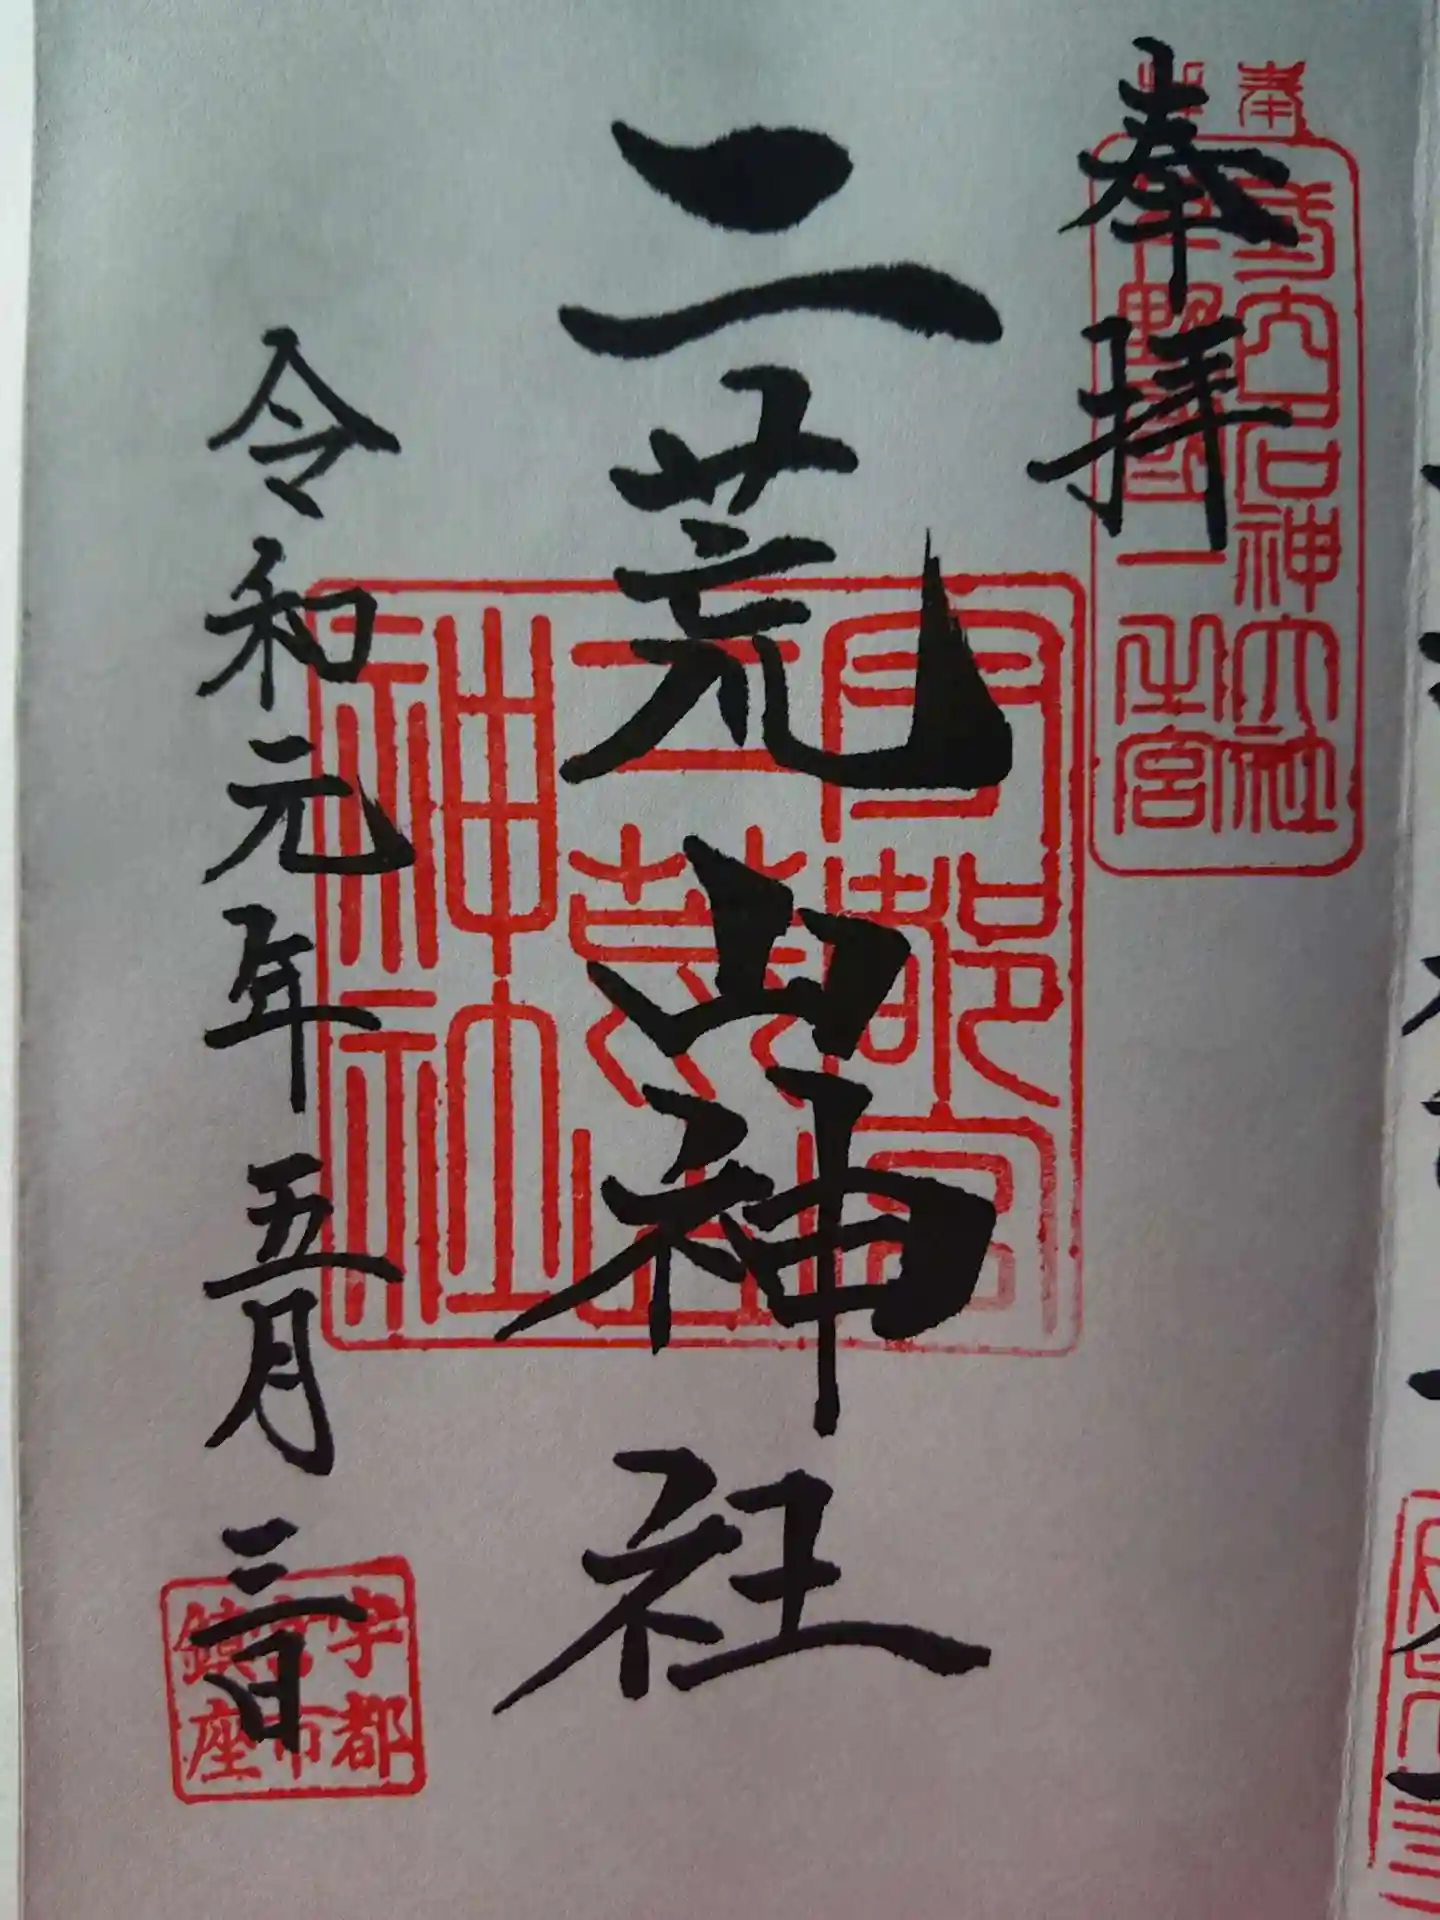 奉拝
式内名神大社
下野國一之宮
二荒山神社
宇都宮
二荒山
神社
令和元年五月三日
宇都
宮市
鎮座